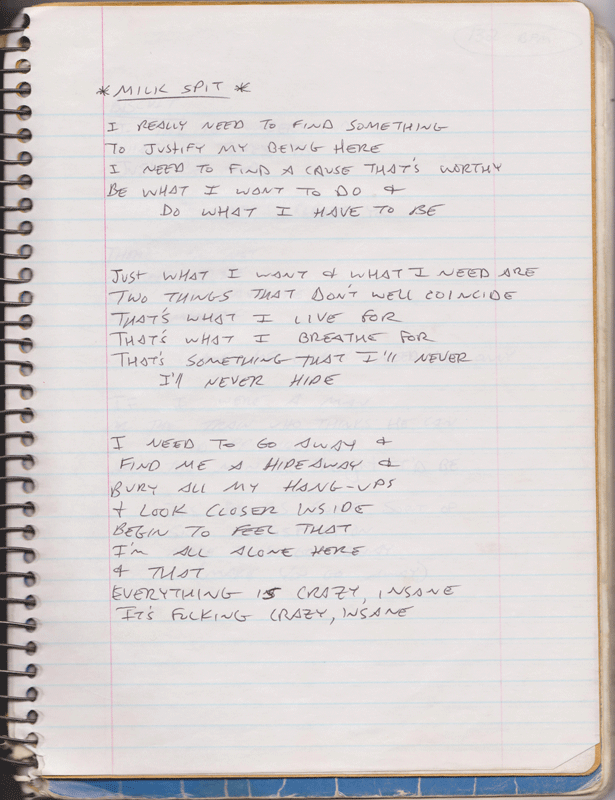 * MILK SPIT *
I REALLY NEED TO FIND SOMETHING
TO JUSTIFY MY BEING HERE
I NEED TO FIND A CAUSE THAT'S WORTHY
BE WHAT I WANT TO DO &
DO WHAT I HAVE TO BE
JUST WHAT I WANT & WHAT I NEED ARE
TWO THINGS THAT DON'T WELL COINCIDE
THAT'S WHAT I LIVE FOR
THAT'S WHAT I BREATHE FOR
THAT'S SOMETHING THAT I'll NEVER
I'll NEVER HIDE
I NEED TO GO AWAY &
FIND ME A HIDEAWAY &
BURY ALL MY HANG-UPS
& LOOK CLOSER INSIDE
BEGIN TO FEEL THAT
I'm ALL ALONE HERE
& THAT
EVERYTHING IS CRAZY, INSANE
IT'S FUCKING CRAZY, INSANE